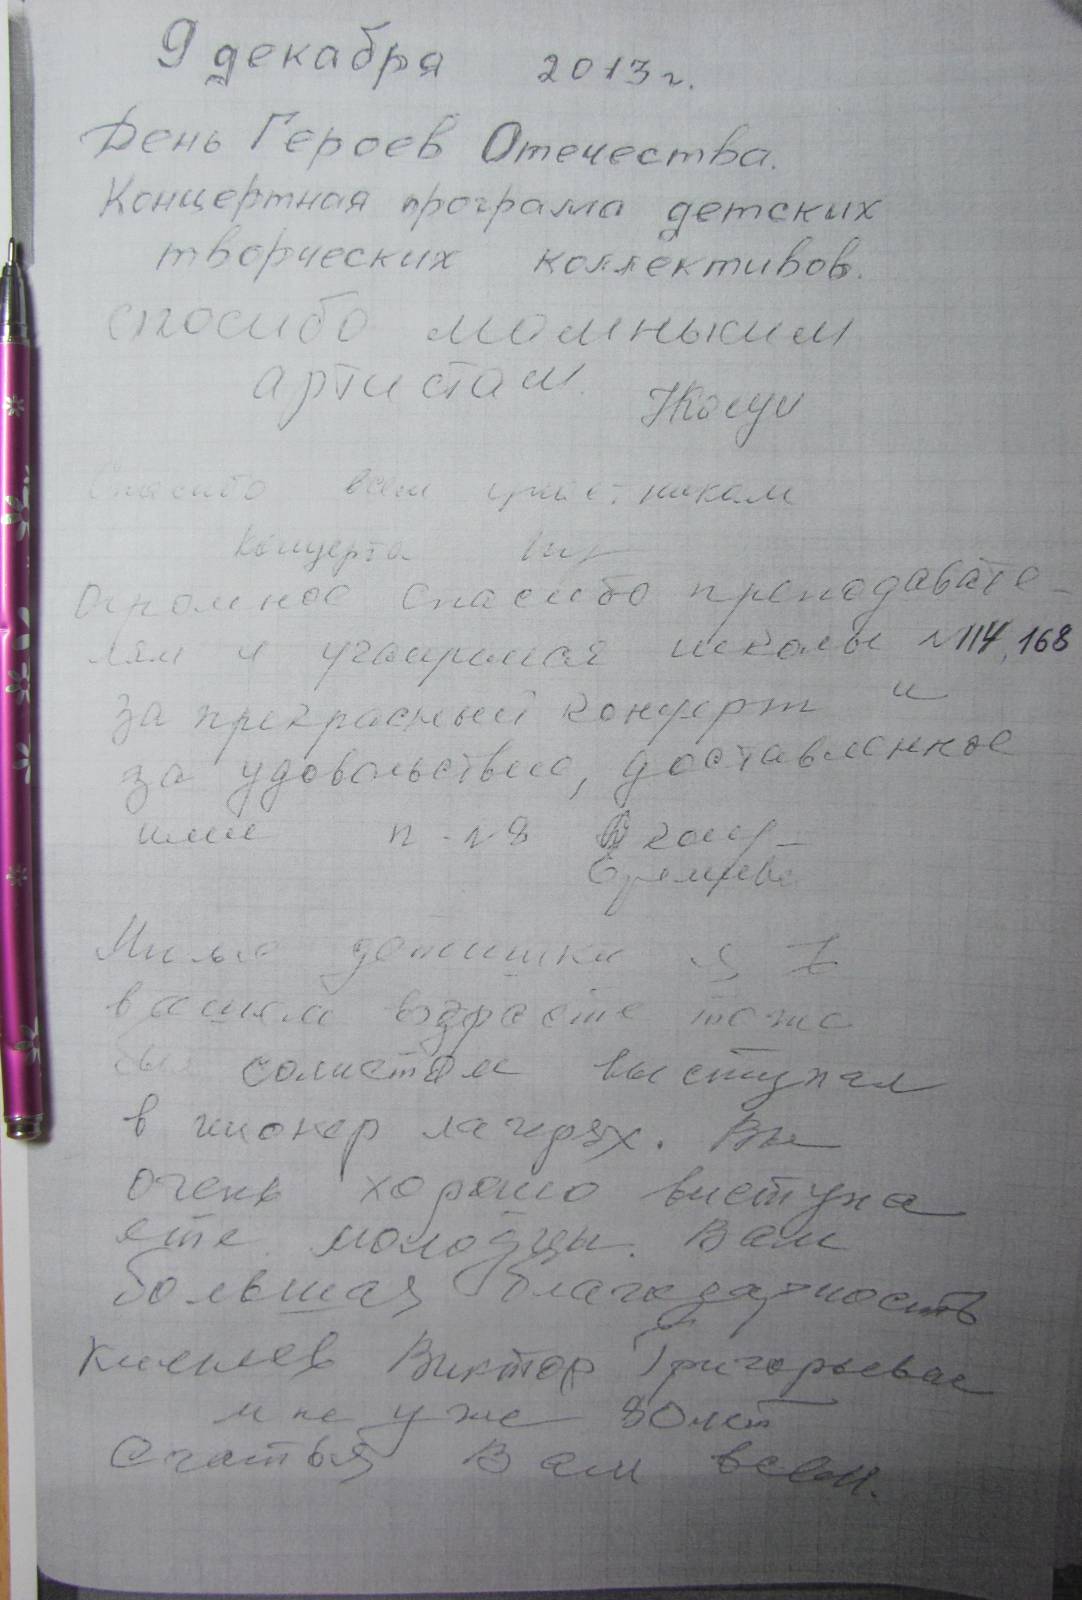 9 декабря 2013 г.
День Героев Отечества.
Концертная програма детских
творческих коллективов.
спосибо
артистам.
Спасибо всем участникам
концерта
Огромное спасибо преподавате-
лям и учащимся школы №114, 168
за прекрасный концерт и
за удовольствие, доставленное
ими
Милые детишки я в
вашем возрасте тоже
был солистом выступал
в пионер лагерях. Вы
очень хорошо выступа
ете. молодцы. Вам
большая благодарность
Виктор Григорьевич
мне уже 80 лет
Счастья Вам всем.